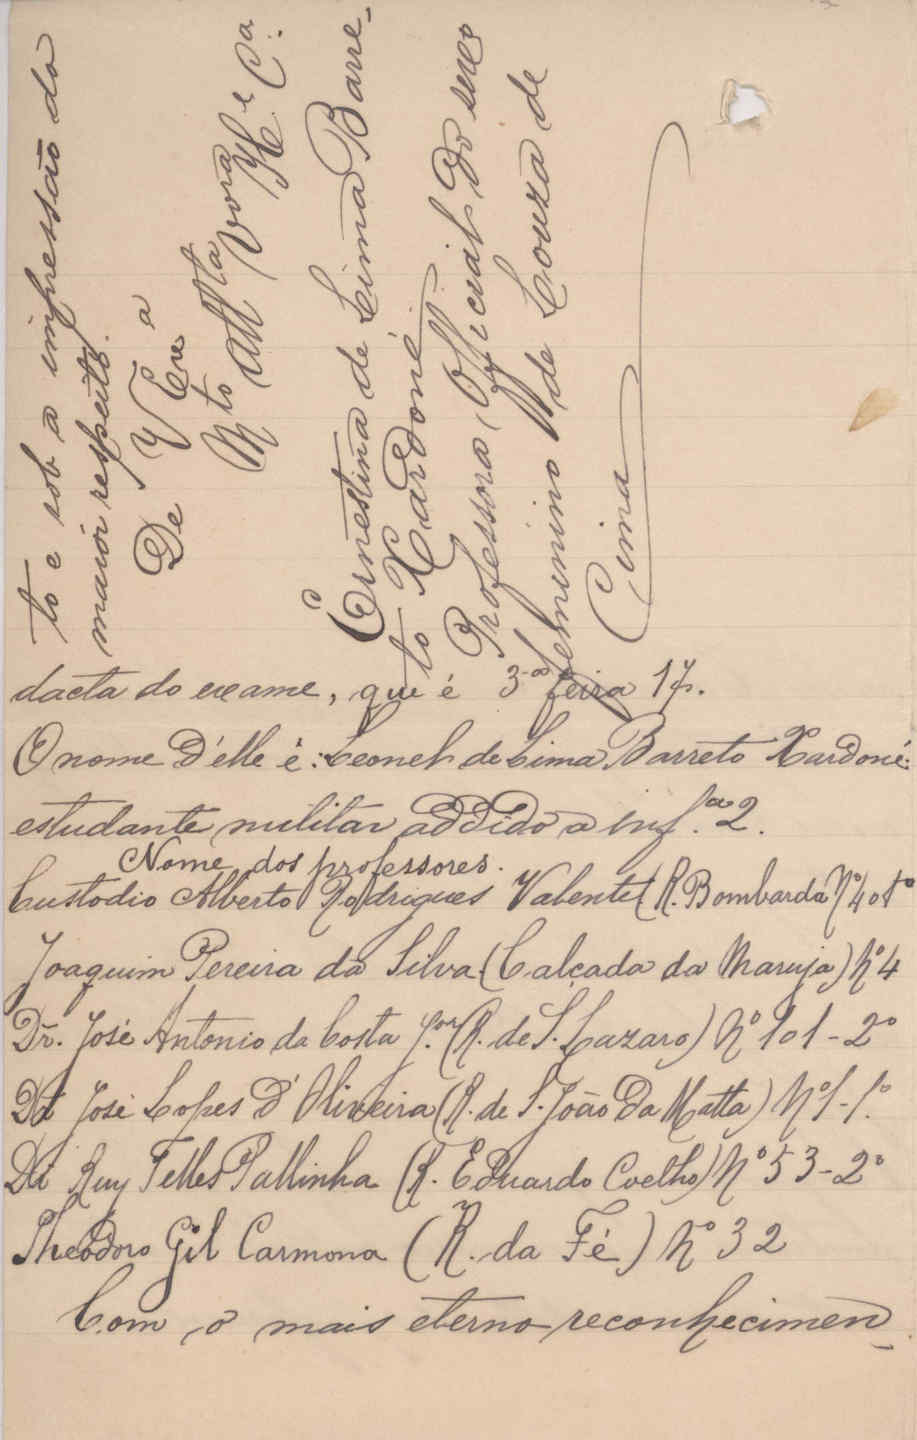 dacta do exame, que é 3.ª feira 17.
O nome D'elle é: Leonel de Lima Barreto Xardoné:
estudante militar addido a inf.ª 2.
Nome dos professores.
Custodio Alberto Rodrigues Valente (R. Bombarda Nº 40 1º
Joaquim Pereira da Silva (Calçada da Maruja) Nº 4
Dr. José Antonio da Costa J.or (R. de S. Lazaro) Nº 101-2º
Dr José Lopes d'Oliveira (R. de S. João da Matta) Nº 1-1.º
Dr Ruy Telles Pallinha (R. Eduardo Coelho) Nº 53-2º
Theodoro Gil Carmona (R. da Fé) Nº 32
Com o mais eterno reconhecimen-
to e sob a impressão do
maior respeito.
De V. Ex.a
M.to Att.ta Ven.ora
Ernestina de Lima Barre-
to Xardoné
Professora Official do sexo
femenino de Souza de
Cima